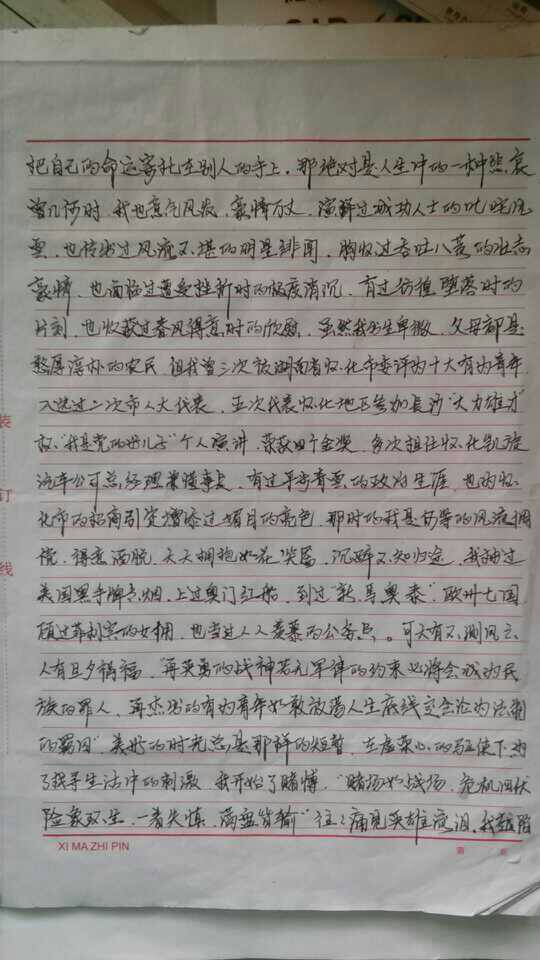 把自己的命运寄托在别人的手上，那绝对是人生中的一种悲哀
曾几何时，我也意气风发，豪情万丈，演绎过成功人士的叱咤风
云，也传出过风流不堪的明星绯闻，胸怀过吞吐八荒的壮志
豪情，也面临过遭受挫折时的极度消沉，有过彷徨堕落时的
片刻，也收获过春风得意时的欣慰，虽然我出生卑微，父母都是
憨厚淳朴的农民，但我曾三次被湖南省怀化市委评为十大有为青年
入选过二次市人大代表，五次代表怀化地区参加长沙“大力雄才
杯”“我是党的好儿子”个人演讲，荣获四个金奖，多次担任怀化凯旋
汽车公司总经理兼懂事长，有过平步青云的政府生涯，也为怀
化市的招商引资增添过媚目的亮色，那时的我是何等的风流倜
傥，得意洒脱，天天拥抱如花笑靥，沉醉不知归途，我抽过
美国黑手牌香烟，上过奥门红船，到过“新、马、奥、泰”，欧州七国
顾过菲利宾的女拥，也当过人人羡慕的公务员。可天有不测风云
人有旦夕祸福，“再英勇的战神若无军律的约束必将会成为民
族的罪人，再杰出的有为青年如敢放荡人生底线定会沦为法网
的羁囚”，美好的时光总是那样的短暂，在虚荣心的驱使下为
了找寻生活中的刺激，我开始了赌博，“赌场如战场，危机四伏
险象双生，一着失慎，满盘皆输”往往痛见英雄度泪，我
XI MA ZHI PIN
第 页
装
订
线